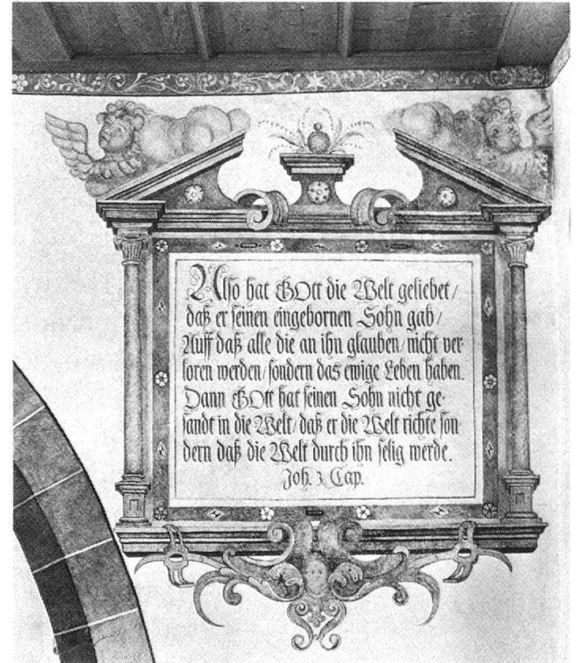 Also hat GOtt die Welt geliebet/
daß er seinen eingebornen Sohn gab/
Auff daß alle die an ihn glauben/nicht ver
loren werden/sondern das ewige Leben haben.
Dann GOtt hat seinen Sohn nicht ge⸗
sandt in die Welt/daß er die Welt richte son
dern daß die Welt durch ihn selig werde.
Joh. 3 Cap.